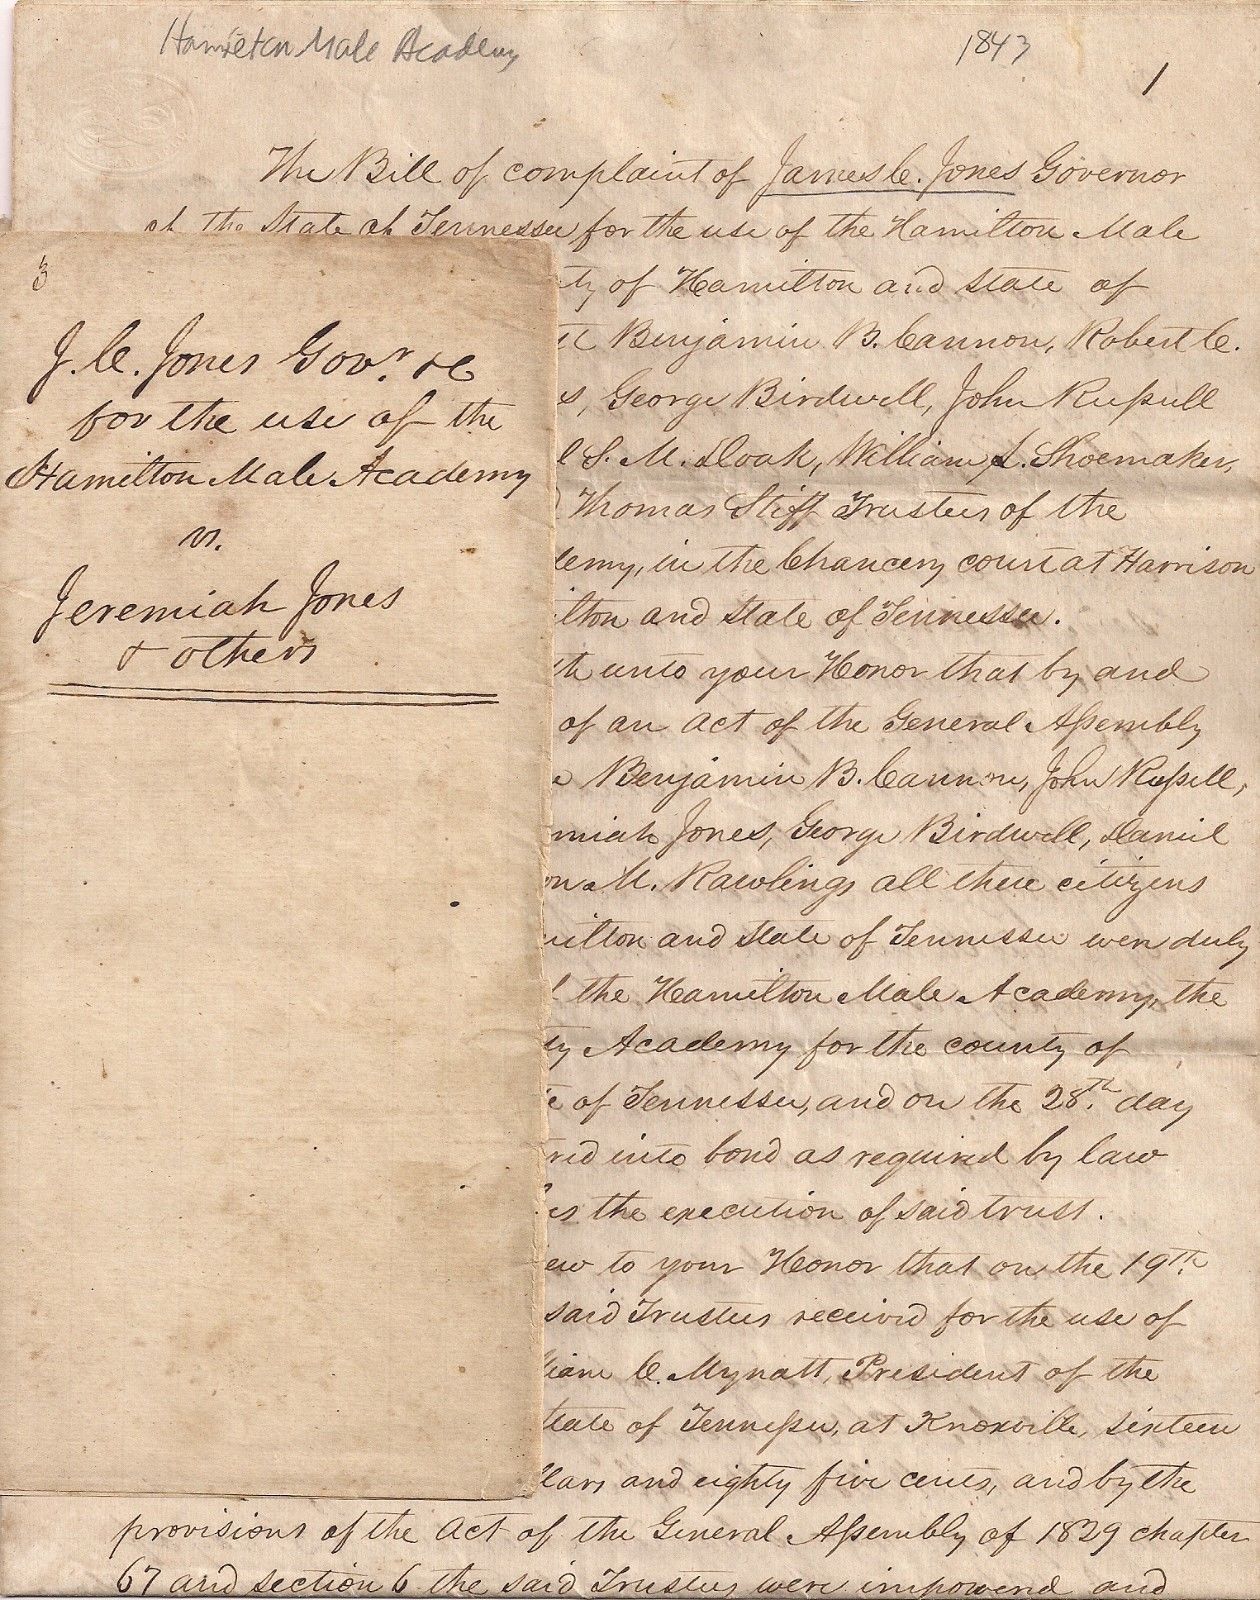 Hamilton Male Academy
1843
1
The Bill of complaint of James C. Jones Governor
of the State of Tennessee for the use of the Hamilton Male
ty of Hamilton and State of
Benjamin B. Cannon, Robert C.
s, George Birdwell, John Russell
l S. M. Doak, William L. Shoemaker,
d Thomas Stiff Trustees of the
demy, in the Chancery court at Harrison
ilton and State of Tennessee.
th unto your Honor that by and
of an act of the General Assembly
e Benjamin B. Cannon, John Russell,
miah Jones, George Birdwell, Daniel
on M. Rawlings all these citizens
milton and State of Tennessee were duly
the Hamilton Male Academy, the
ty Academy for the county of
e of Tennessee, and on the 28th. day
red into bond as required by law
es the execution of said trust.
ew to your Honor that on the 19th.
said Trustees received for the use of
liam C. Mynatt, President of the
tate of Tennessee, at Knoxville, sixteen
llars and eighty five cents, and by the
provisions of the Act of the General Assembly of 1829 chapter
67 and section 6 the said Trustees were impowered and
3
J. C. Jones Govr. &c
for the use of the
Hamilton Male Academy
vs.
Jeremiah Jones
& others